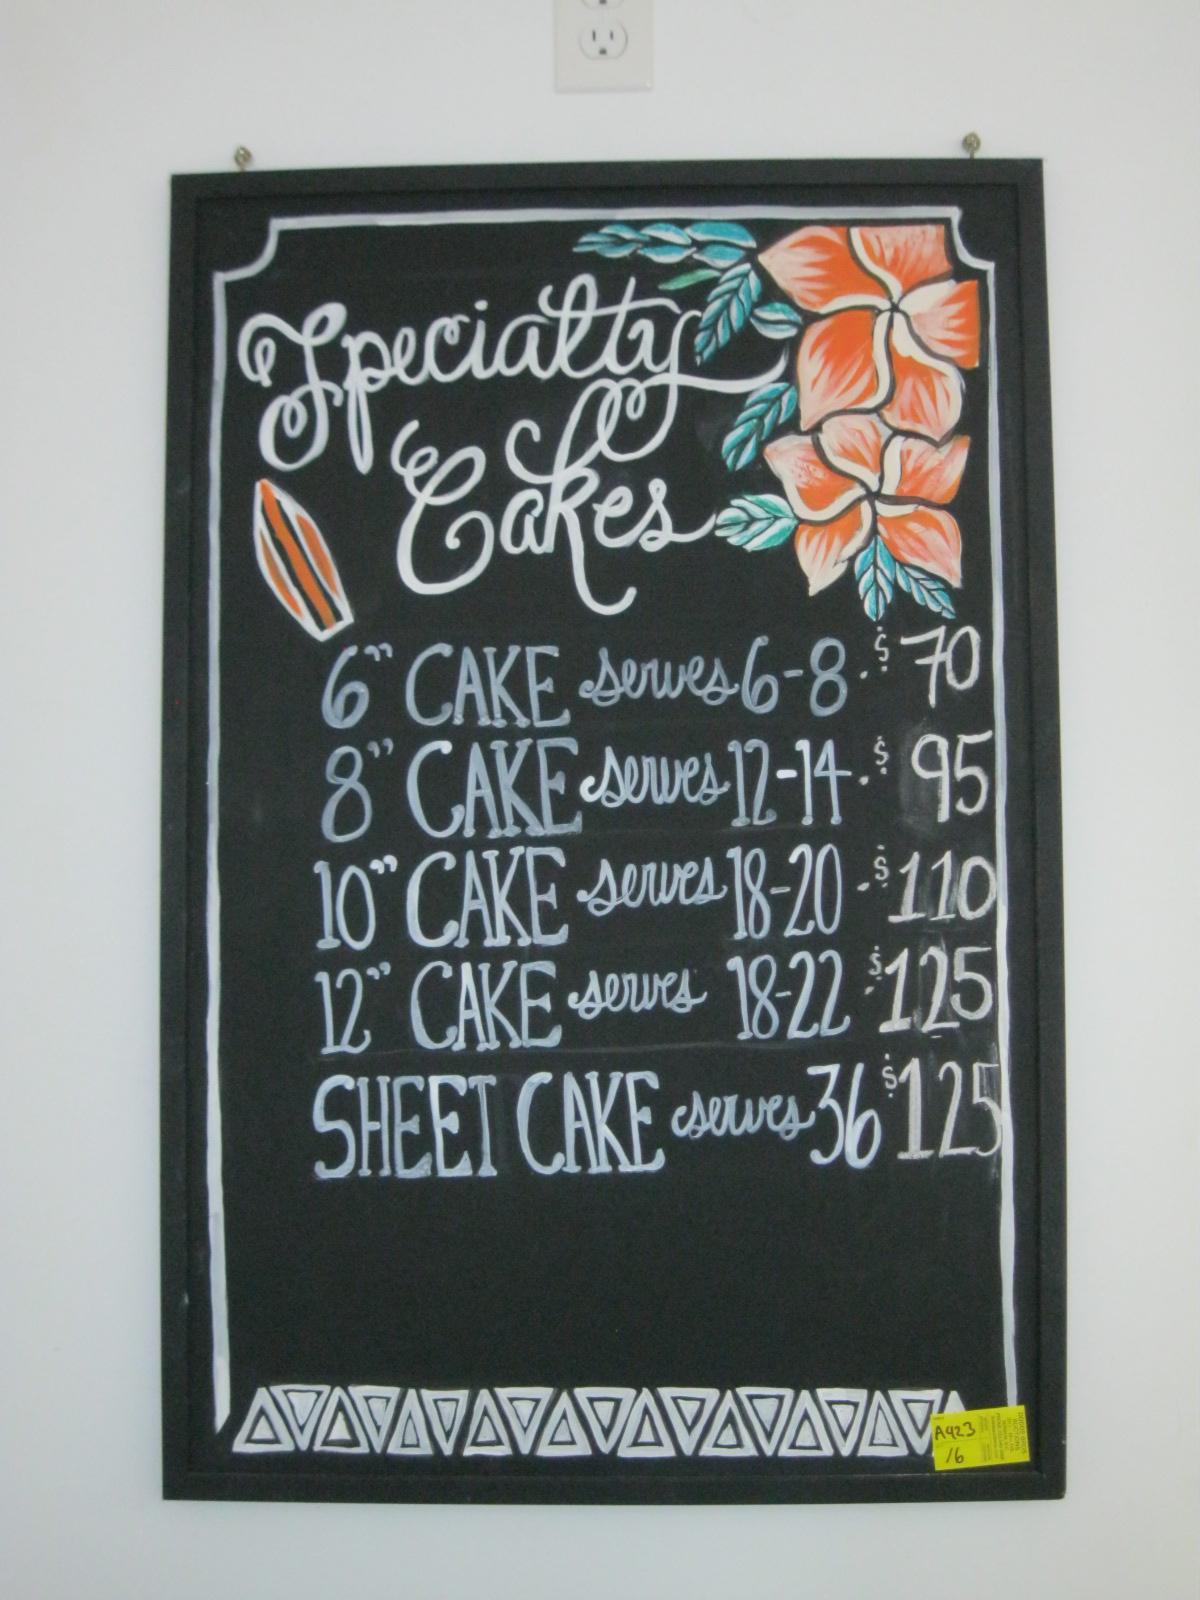 Specialty
Cakes
6" CAKE serves 6-8 . $ 70
8" CAKE serves 12-14 . $ 95
10" CAKE serves 18-20 . $ 110
12" CAKE serves 18-22 . $ 125
SHEET CAKE serves 36 $ 125
A423
16